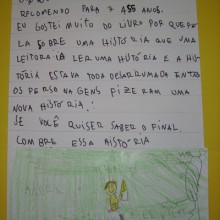 RECOMENDO PARA 7 ANOS.
EU GOSTEI MUITO DO LIVRO PORQUE
LA SOBRE UMA HISTÓRIA QUE UMA
LEITORA IA LER UMA HISTÓRIA E A HIS
TÓRIA ESTAVA TODA DESARRUMADA ENTÃO
OS PERSONAGENS FIZERAM UMA
NOVA HISTÓRIA!
SE VOCÊ QUISER SABER O FINAL
COMBRE ESSA AISTÓRIA